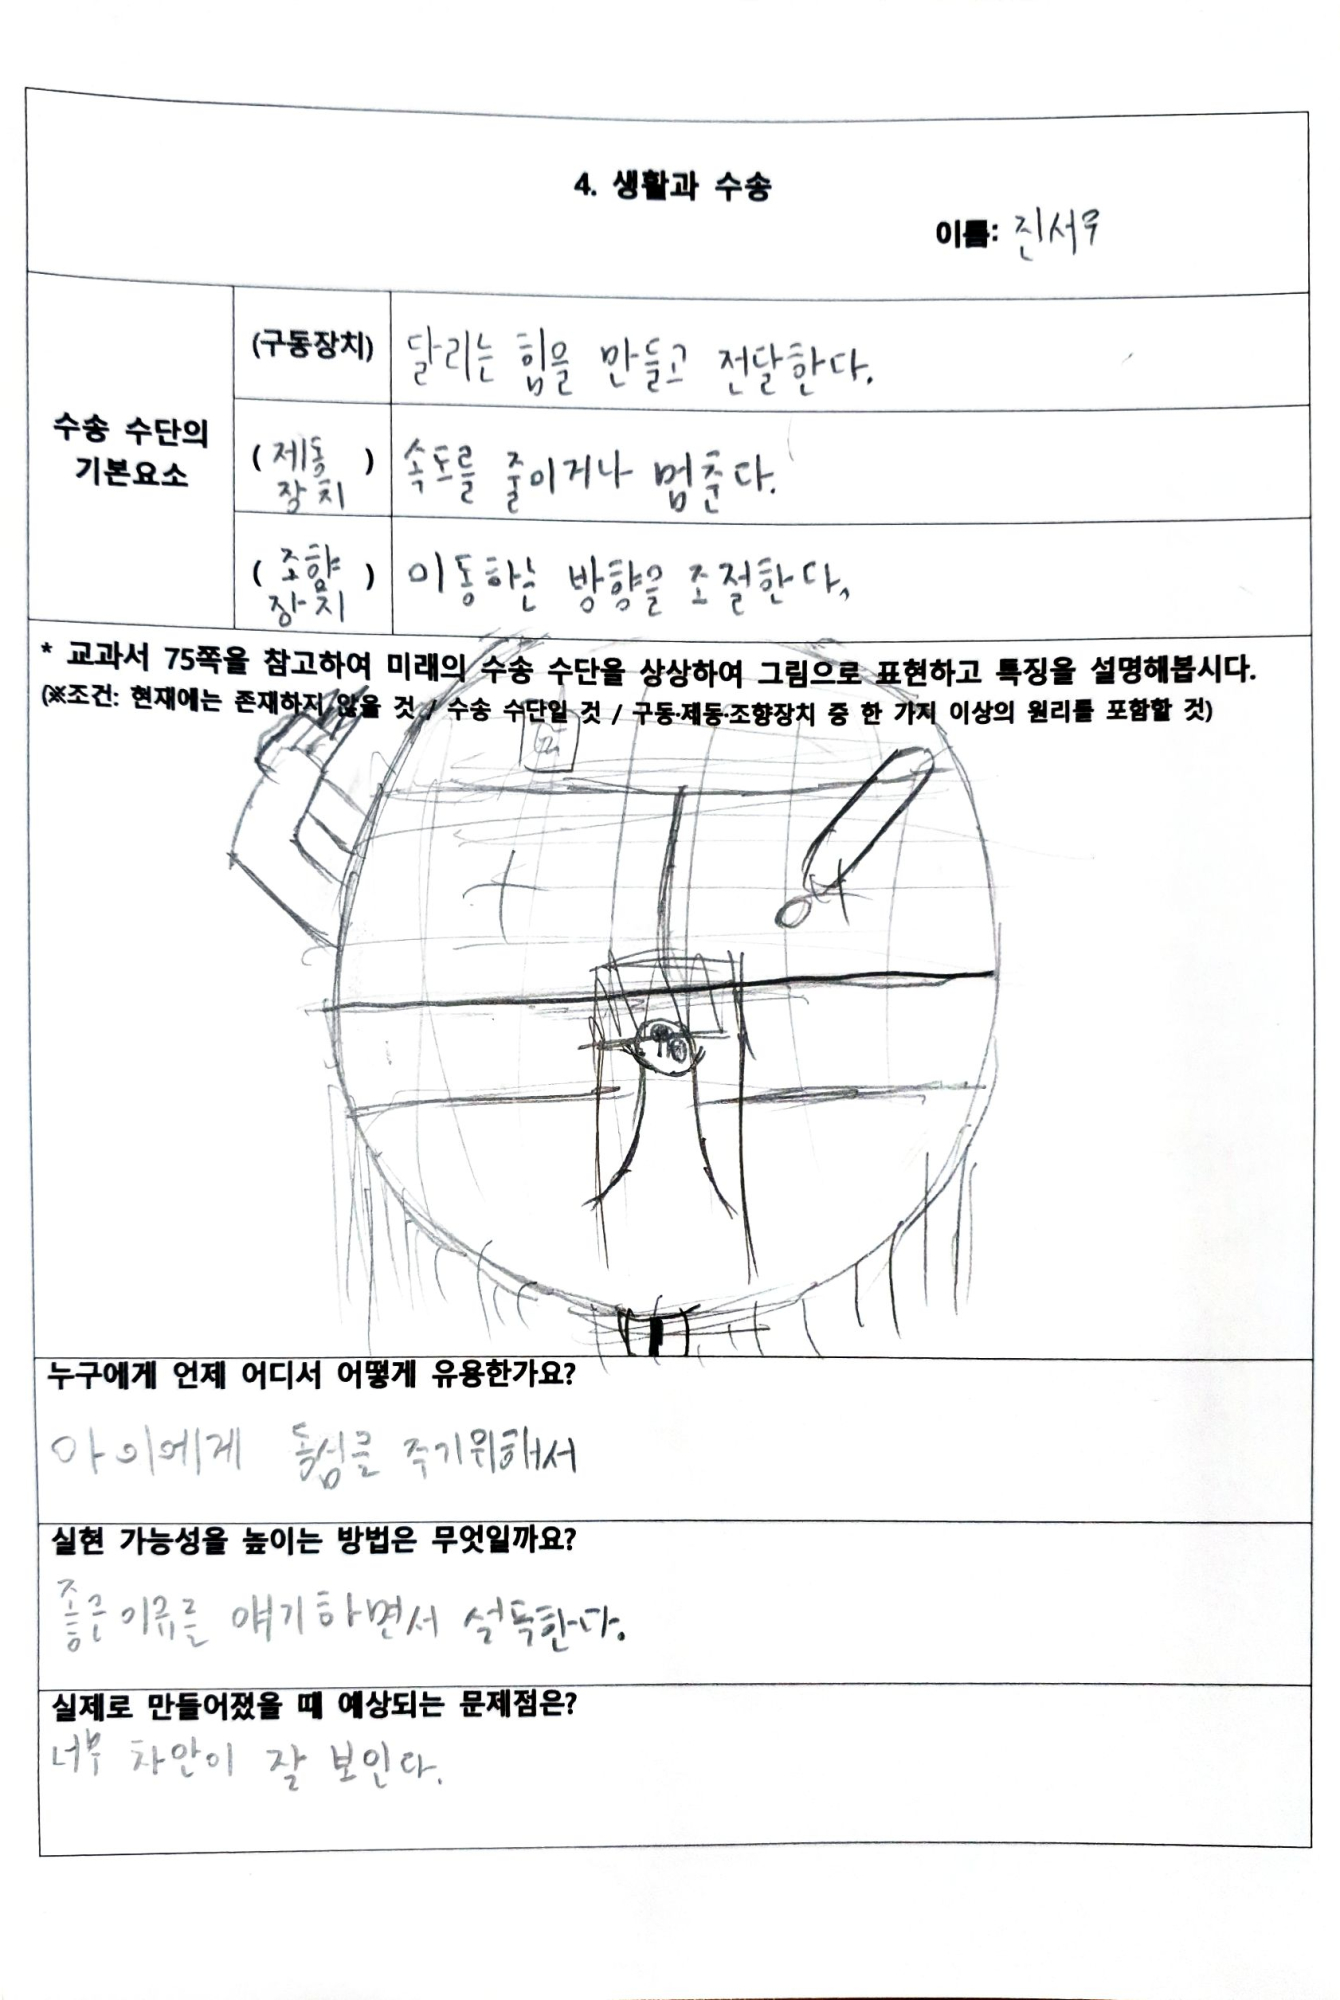 4. 생활과 수송
이름: 진서우
(구동장치) 달리는 힘을 만들고 전달한다.
수송 수단의
기본요소
( 제동
장치 ) 속도를 줄이거나 멈춘다.
( 조향
장치 ) 이동하는 방향을 조절한다.
* 교과서 75쪽을 참고하여 미래의 수송 수단을 상상하여 그림으로 표현하고 특징을 설명해봅시다.
(※조건: 현재에는 존재하지 않을 것 / 수송 수단일 것 / 구동·제동·조향장치 중 한 가지 이상의 원리를 포함할 것)
누구에게 언제 어디서 어떻게 유용한가요?
아이에게 동심를 주기위해서
실현 가능성을 높이는 방법은 무엇일까요?
좋은 이유를 얘기하면서 설득한다.
실제로 만들어졌을 때 예상되는 문제점은?
너무 차안이 잘 보인다.